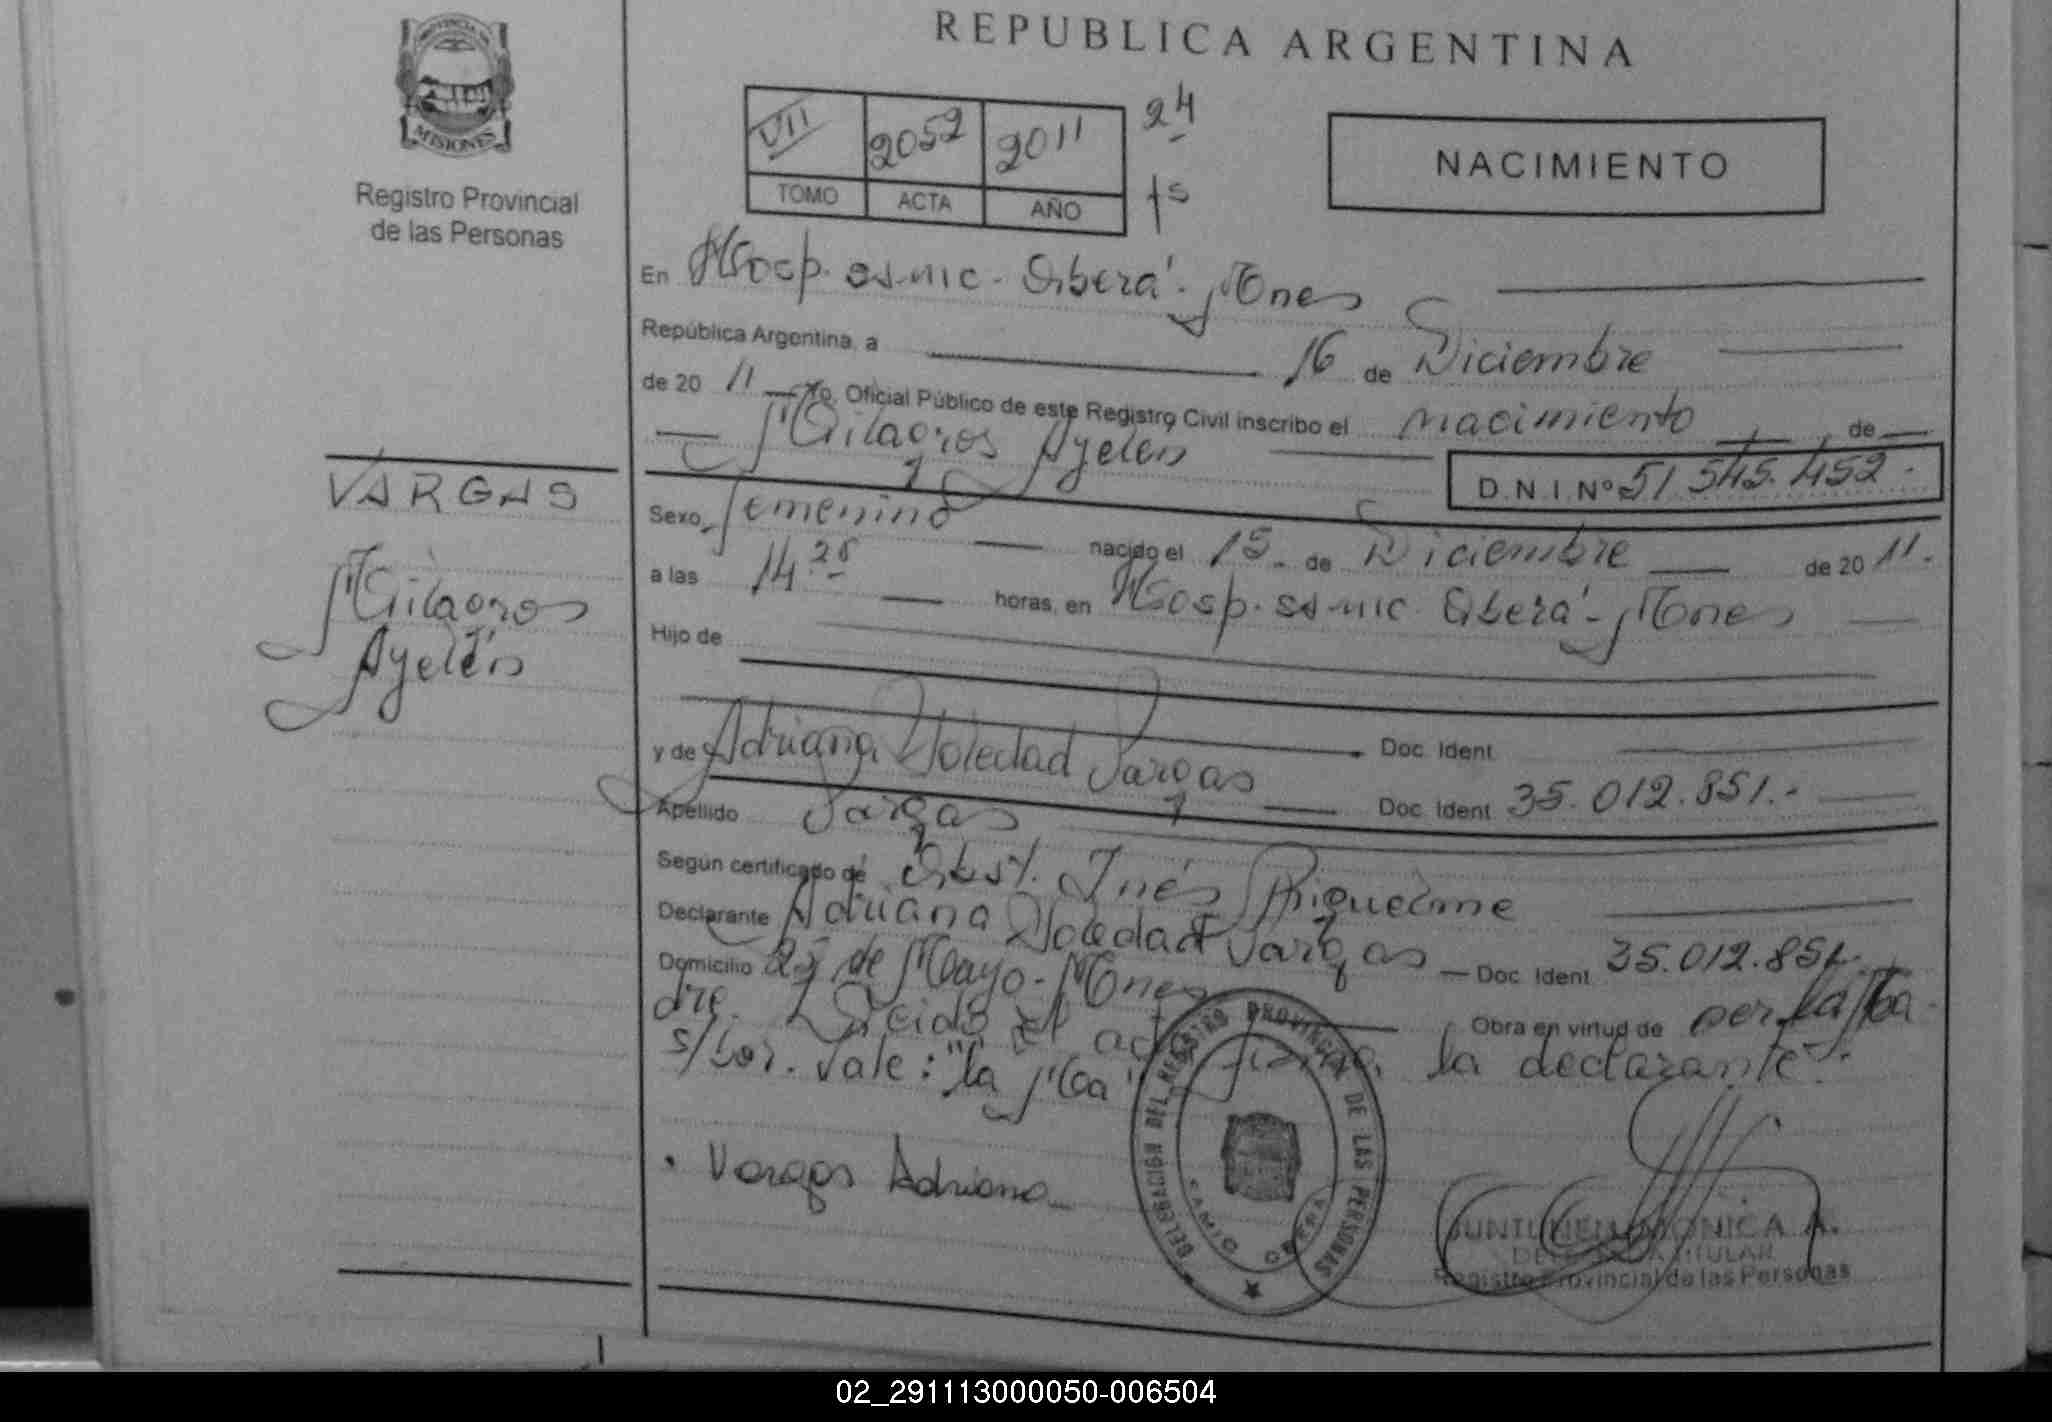 PROVINCIA DE
MISIONES
Registro Provincial
de las Personas
REPUBLICA ARGENTINA
VII 2052 2011 24
TOMO ACTA AÑO fs
NACIMIENTO
En Hosp. ss-mic - Oberá - Mnes
República Argentina, a 16 de Diciembre
de 20 11 Yo, Oficial Público de este Registro Civil inscribo el nacimiento de
Milagros Ayelén
D.N.I. Nº 51.545.452.
VARGAS
Milagros
Ayelén
Sexo femenino nacido el 15 de Diciembre de 20 11.
a las 14 horas, en Hosp. ss-mic Oberá - Mnes
Hijo de
Doc. Ident.
y de Adriana Soledad Vargas Doc. Ident. 35.012.851.-
Apellido Vargas
Según certificado de Obst. Inés Riquelme
Declarante Adriana Soledad Vargas Doc. Ident. 35.012.851.
Domicilio 25 de Mayo - Mnes
Obra en virtud de ser la Ma-
dre. Leído el acta firma la declarante".
s/bor. Vale: "la Ma"
Vargas Adriana
DELEGACIÓN DEL REGISTRO PROVINCIAL DE LAS PERSONAS
OBERÁ
MONICA A.
TITULAR
Registro Provincial de las Personas
02_291113000050-006504